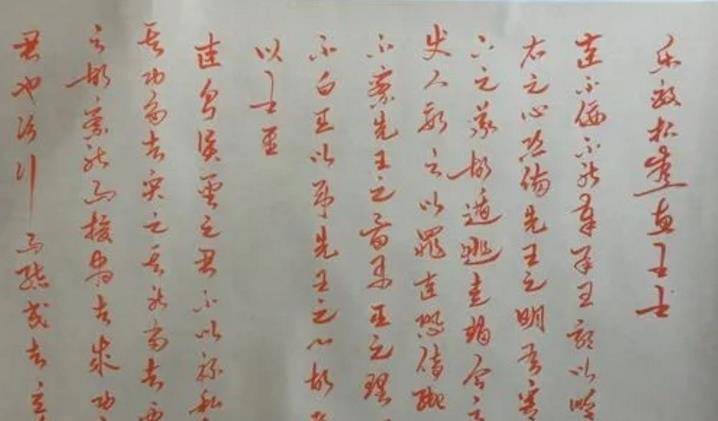 乐毅报燕惠王书
臣不佞不能奉承王命以顺
右之心恐伤先王之明有害
下之义故遁逃走赵今足
使人数之以罪臣恐侍御
不察先王之畜幸臣之理
不白臣以事先王之心故
以书对
臣闻贤圣之君不以禄私
其功多者赏之其能当者处
之故察能而授官者成功
君也论行而结交者立